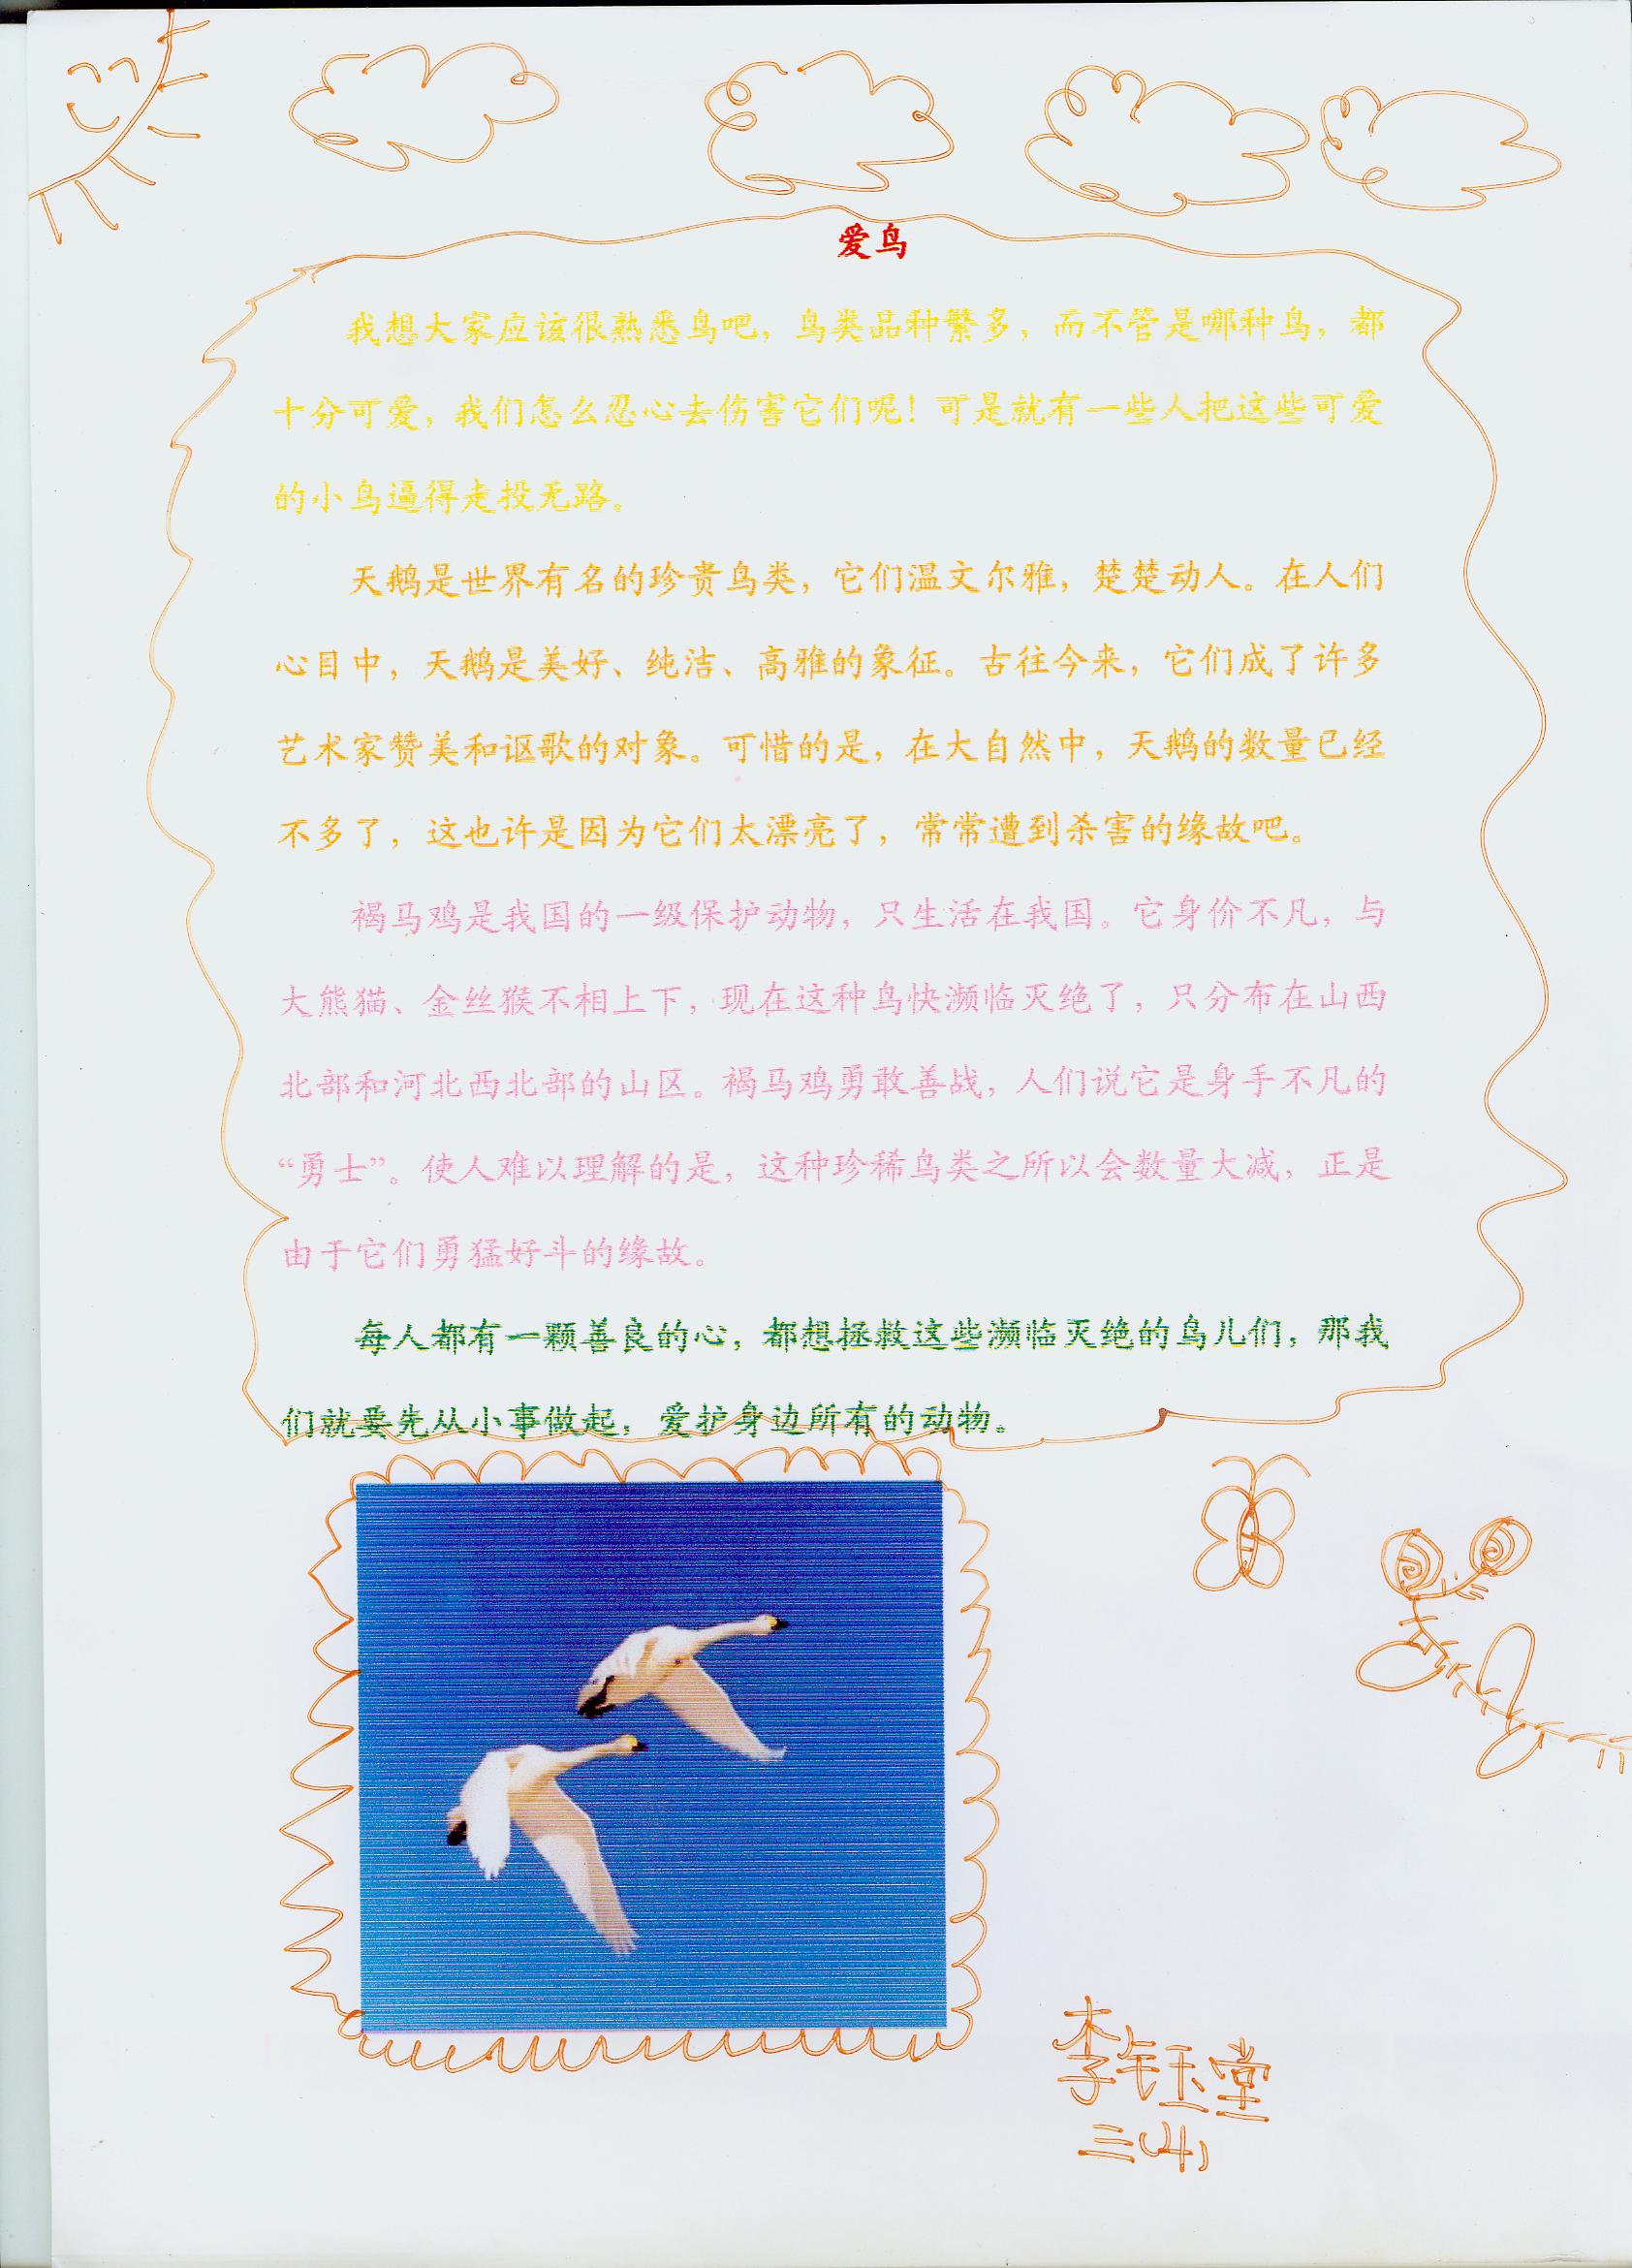 爱鸟
我想大家应该很熟悉鸟吧，鸟类品种繁多，而不管是哪种鸟，都
十分可爱，我们怎么忍心去伤害它们呢！可是就有一些人把这些可爱
的小鸟逼得走投无路。
天鹅是世界有名的珍贵鸟类，它们温文尔雅，楚楚动人。在人们
心目中，天鹅是美好、纯洁、高雅的象征。古往今来，它们成了许多
艺术家赞美和讴歌的对象。可惜的是，在大自然中，天鹅的数量已经
不多了，这也许是因为它们太漂亮了，常常遭到杀害的缘故吧。
褐马鸡是我国的一级保护动物，只生活在我国。它身价不凡，与
大熊猫、金丝猴不相上下，现在这种鸟快濒临灭绝了，只分布在山西
北部和河北西北部的山区。褐马鸡勇敢善战，人们说它是身手不凡的
“勇士”。使人难以理解的是，这种珍稀鸟类之所以会数量大减，正是
由于它们勇猛好斗的缘故。
每人都有一颗善良的心，都想拯救这些濒临灭绝的鸟儿们，那我
们就要先从小事做起，爱护身边所有的动物。
李钰堂
三(4)